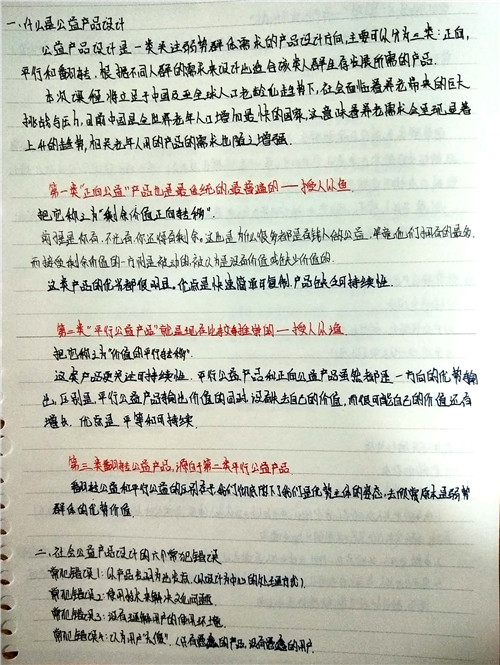 一、什么是公益产品设计
公益产品设计是一类关注弱势群体需求的产品设计方向,主要可以分为三类:正向,
平行和翻转,根据不同人群的需求来设计出适合该类人群生存发展所需的产品。
本次课程将立足于中国及至全球人口老龄化趋势下,社会面临着养老带来的巨大
挑战与压力,目前中国是全世界老年人口增加最快的国家,这意味着养老需求会呈现显著
上升的趋势,相关老年人用的产品的需求也随之增强。
第一类“正向公益”产品也是最传统的最普遍的——授人以鱼。
把它称之为“剩余价值正向转移”.
前提是你有,不光有你还得有剩余。这也是为什么很多都是有钱人做公益,
而接受剩余价值的一方则是被动的,被认为是没有价值或缺少价值的.
这类产品的优劣都很明显。优点是快速简单可复制,产品缺乏可持续性.
第二类“平行公益产品”就是现在比较推崇的——授人以渔.
把它称之为“价值的平行转移”.
这类产品更关注可持续性.平行公益产品和正向公益产品虽然都是一方向的优势输
出,区别是,平行公益产品输出价值的同时,没有失去自己的价值,而很可能自己的价值还有
增长.优点是平等和可持续.
第三类翻转公益产品,源自于第二类平行公益产品.
翻转公益和平行公益的区别在于我们彻底放下了我们是优势主体的姿态,去欣赏原来是弱势
群体的优势价值.
二、社会公益产品设计的六个常犯错误
常犯错误1:以产品出发为出发点.(以设计为中心的处理方式).
常犯错误2:使用技术来解决文化问题.
常犯错误3:没有理解用户的使用环境.
常犯错误4:认为用户“太傻”.(只有愚蠢的产品,没有愚蠢的用户.